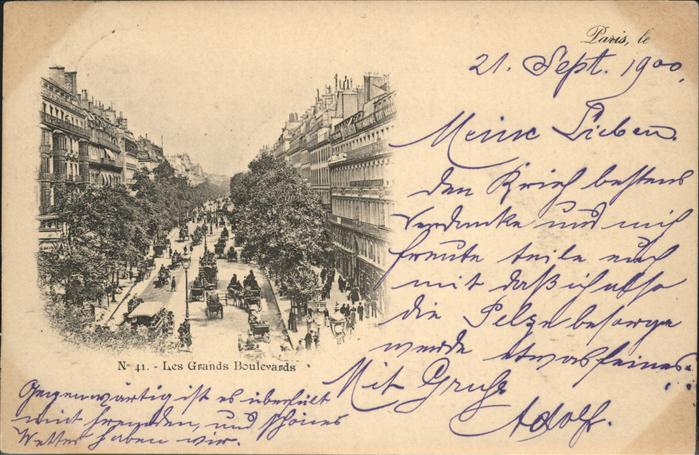 Paris, le
21. Sept. 1900.
Meine Lieben.
den Brief bestens
verdanke und mich
freute teile euch
mit daß ich also
die Pelze besorge
werde etwas feines.
Mit Gruß
Adolf.
N° 41. - Les Grands Boulevards
Gegenwärtig ist es überfüllt
mit fremden, und schönes
Wetter haben wir.